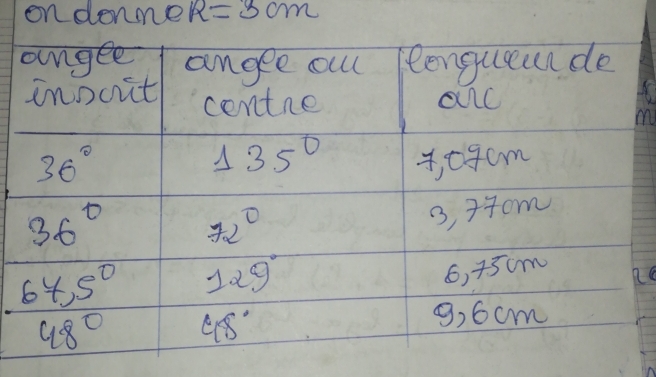 on donne R = 3cm
angle inscrit | angle au centre | longueur de arc
36° | 135° | 7,07cm
36° | 72° | 3,77cm
67,5° | 129° | 6,75cm
48° | 48° | 9,6cm